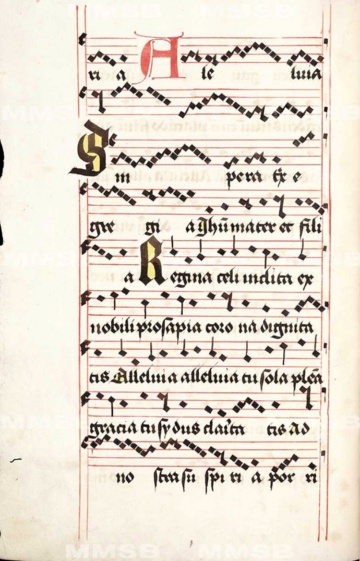 ri a A le luia
Sm pera Ex e
gre gi a Jhu mater et fili
a Regina celi inclita ex
nobili prosapia coro na dignita
tis Alleluia alleluia tu sola plena
gracia tu sydus clari ta tis ad
no stra su spi ri a por ri
MMSB